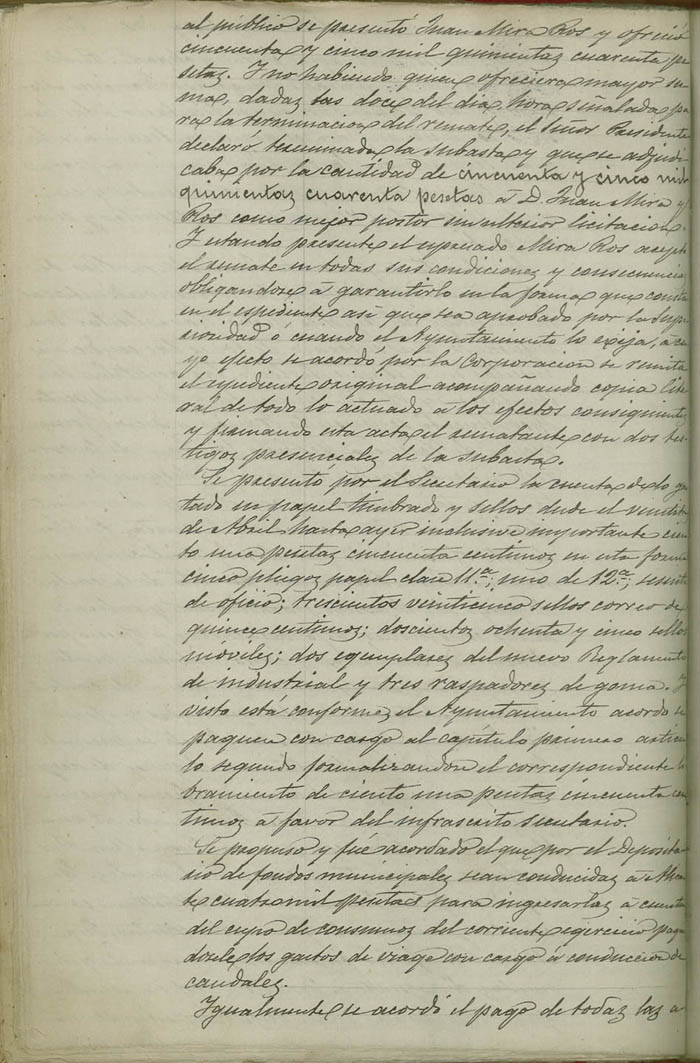 al público se presentó Juan Mira Ros y ofreció
cincuenta y cinco mil quinientas cuarenta pe
setas. Y no habiendo quien ofreciera mayor su
ma, dadas las doce del dia, hora señalada pa
ra la terminacion del remate, el Señor Presidente
declaró terminada la subasta y que se adjudi
caba por la cantidad de cincuenta y cinco mil
quinientas cuarenta pesetas á D. Juan Mira y
Ros como mejor postor sin ulterior licitacion.
Y estando presente el espresado Mira Ros aceptó
el remate en todas sus condiciones y consecuencias
obligandose á garantirlo en la forma que consta
en el espediente asi que sea aprobado por la Supe
rioridad ó cuando el Ayuntamiento lo exija, á cu
yo efecto se acordó por la Corporacion se remita
el espediente original acompañando copia lite
ral de todo lo actuado á los efectos consiguientes
y firmando esta acta el rematante con dos tes-
tigos presenciales de la subasta.
Se presentó por el Secretario la cuenta de lo gas
tado en papel timbrado y sellos desde el veintitres
de Abril hasta ayer inclusive importante cien
to una pesetas cincuenta centimos en esta forma
cinco pliegos papel clase 11.ª; uno de 12.ª; sesenta
de oficio; trescientos veinticinco sellos correo de
quince centimos; doscientos ochenta y cinco sellos
móviles; dos ejemplares del nuevo Reglamento
de industrial y tres raspadores de goma. Y
vista está conforme, el Ayuntamiento acordó se
paguen con cargo al capitulo primero articu
lo segundo formalizandose el correspondiente li
bramiento de ciento una pesetas cincuenta cen
timos á favor del infrascrito Secretario.
Se propuso y fue acordado el que por el Deposita
rio de fondos municipales sean conducidas á Alican
te cuatro mil pesetas para ingresarlas á cuenta
del cupo de consumos del corriente egercicio pagan
dosele los gastos de viage con cargo á conduccion de
caudales.
Igualmente se acordó el pago de todas las a